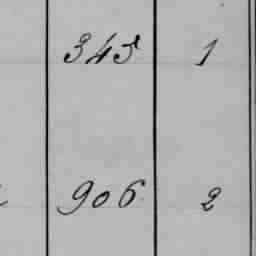 345 1
906 2